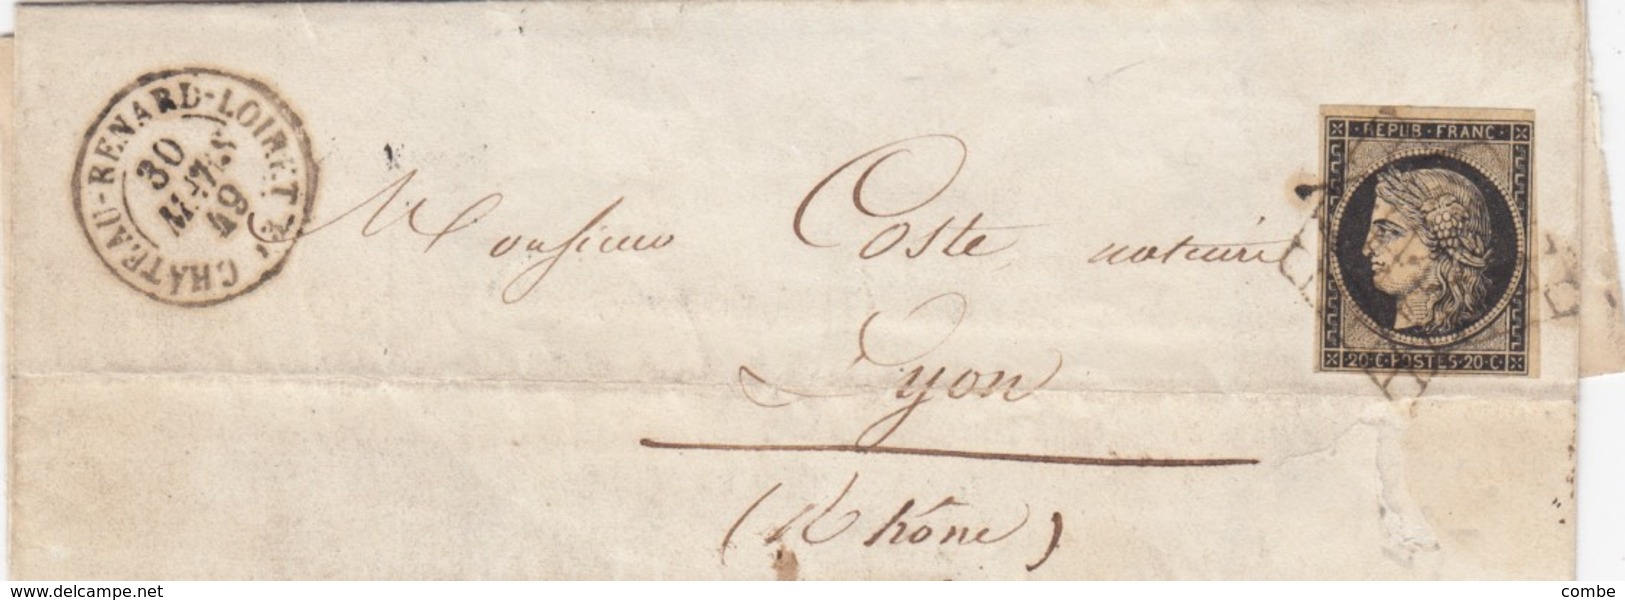 CHATEAU-RENARD-LOIRET
30
MARS
49
REPUB·FRANC·
Monsieur Coste notaire
20·C·POSTES·20·C·
Lyon
(Rhône)
www.delcampe.net
combe